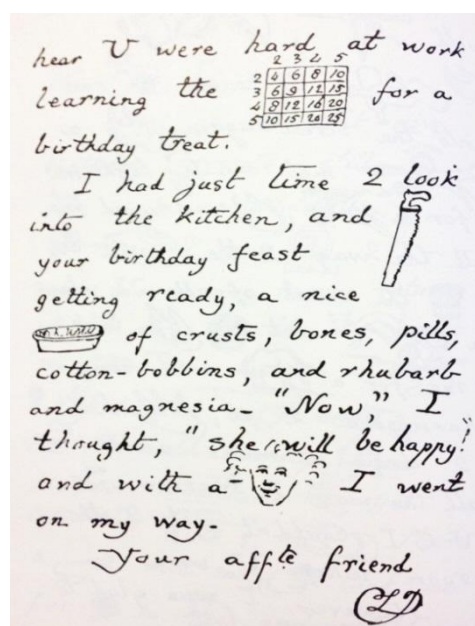 hear U were hard at work
2 3 4 5
2 4 6 8 10
3 6 9 12 15
4 8 12 16 20
5 10 15 20 25
learning the for a
birthday treat.
I had just time 2 look
into the kitchen, and
your birthday feast
getting ready, a nice
of crusts, bones, pills,
cotton-bobbins, and rhubarb
and magnesia- "Now," I
thought, "she will be happy!"
and with a I went
on my way-
Your affte friend
CLD